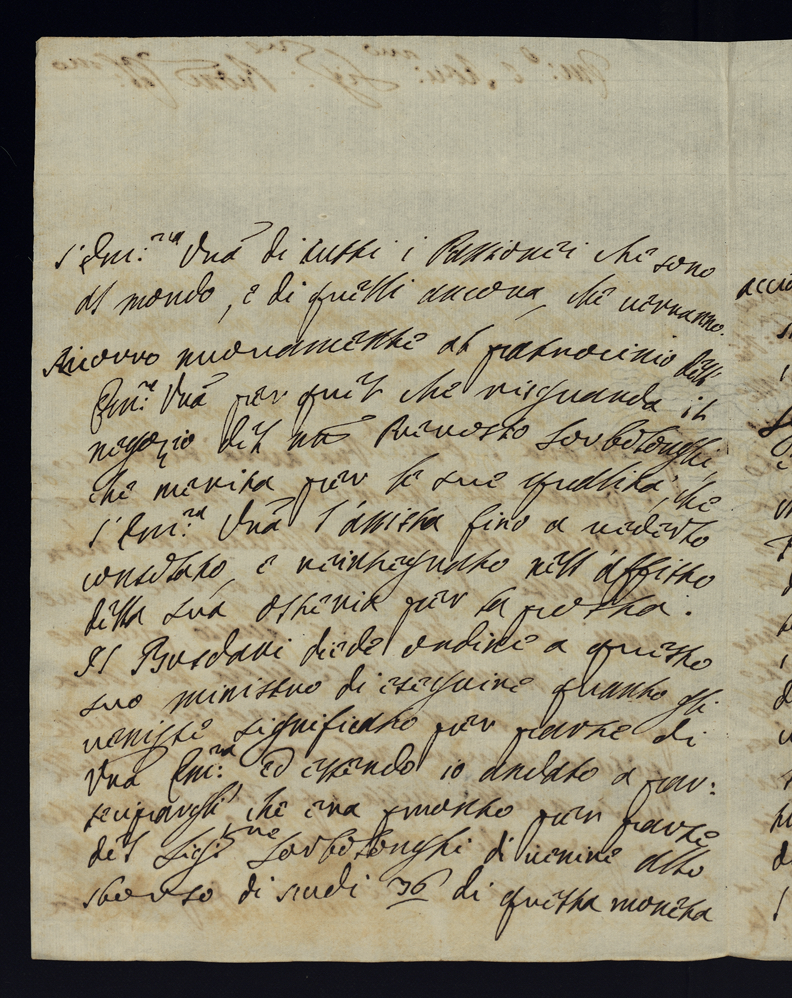 l'Em:za Vrã di tutti i Passionei che sono
al mondo, e di quelli ancora, che verranno.
Ricorro nuovamente al patrocinio dell'
Em:za Vrã per quel che risguarda il
negozio del nrõ Prevosto Sorbolonghi,
che merita per le sue qualità, che
l'Em:za Vrã l'assista fino a vederlo
consolato, e reintegrato nell'affitto
della sua osteria per la posta.
Il Buldani diede ordine a questo
suo ministro di eseguire quanto gli
venisse significato per parte di
Vrã Em:za ed essendo io andato a par:
teciparegli che era pronto per parte
del Sig:re Sorbolonghi di venire allo
sborso di scudi 36 di questa moneta